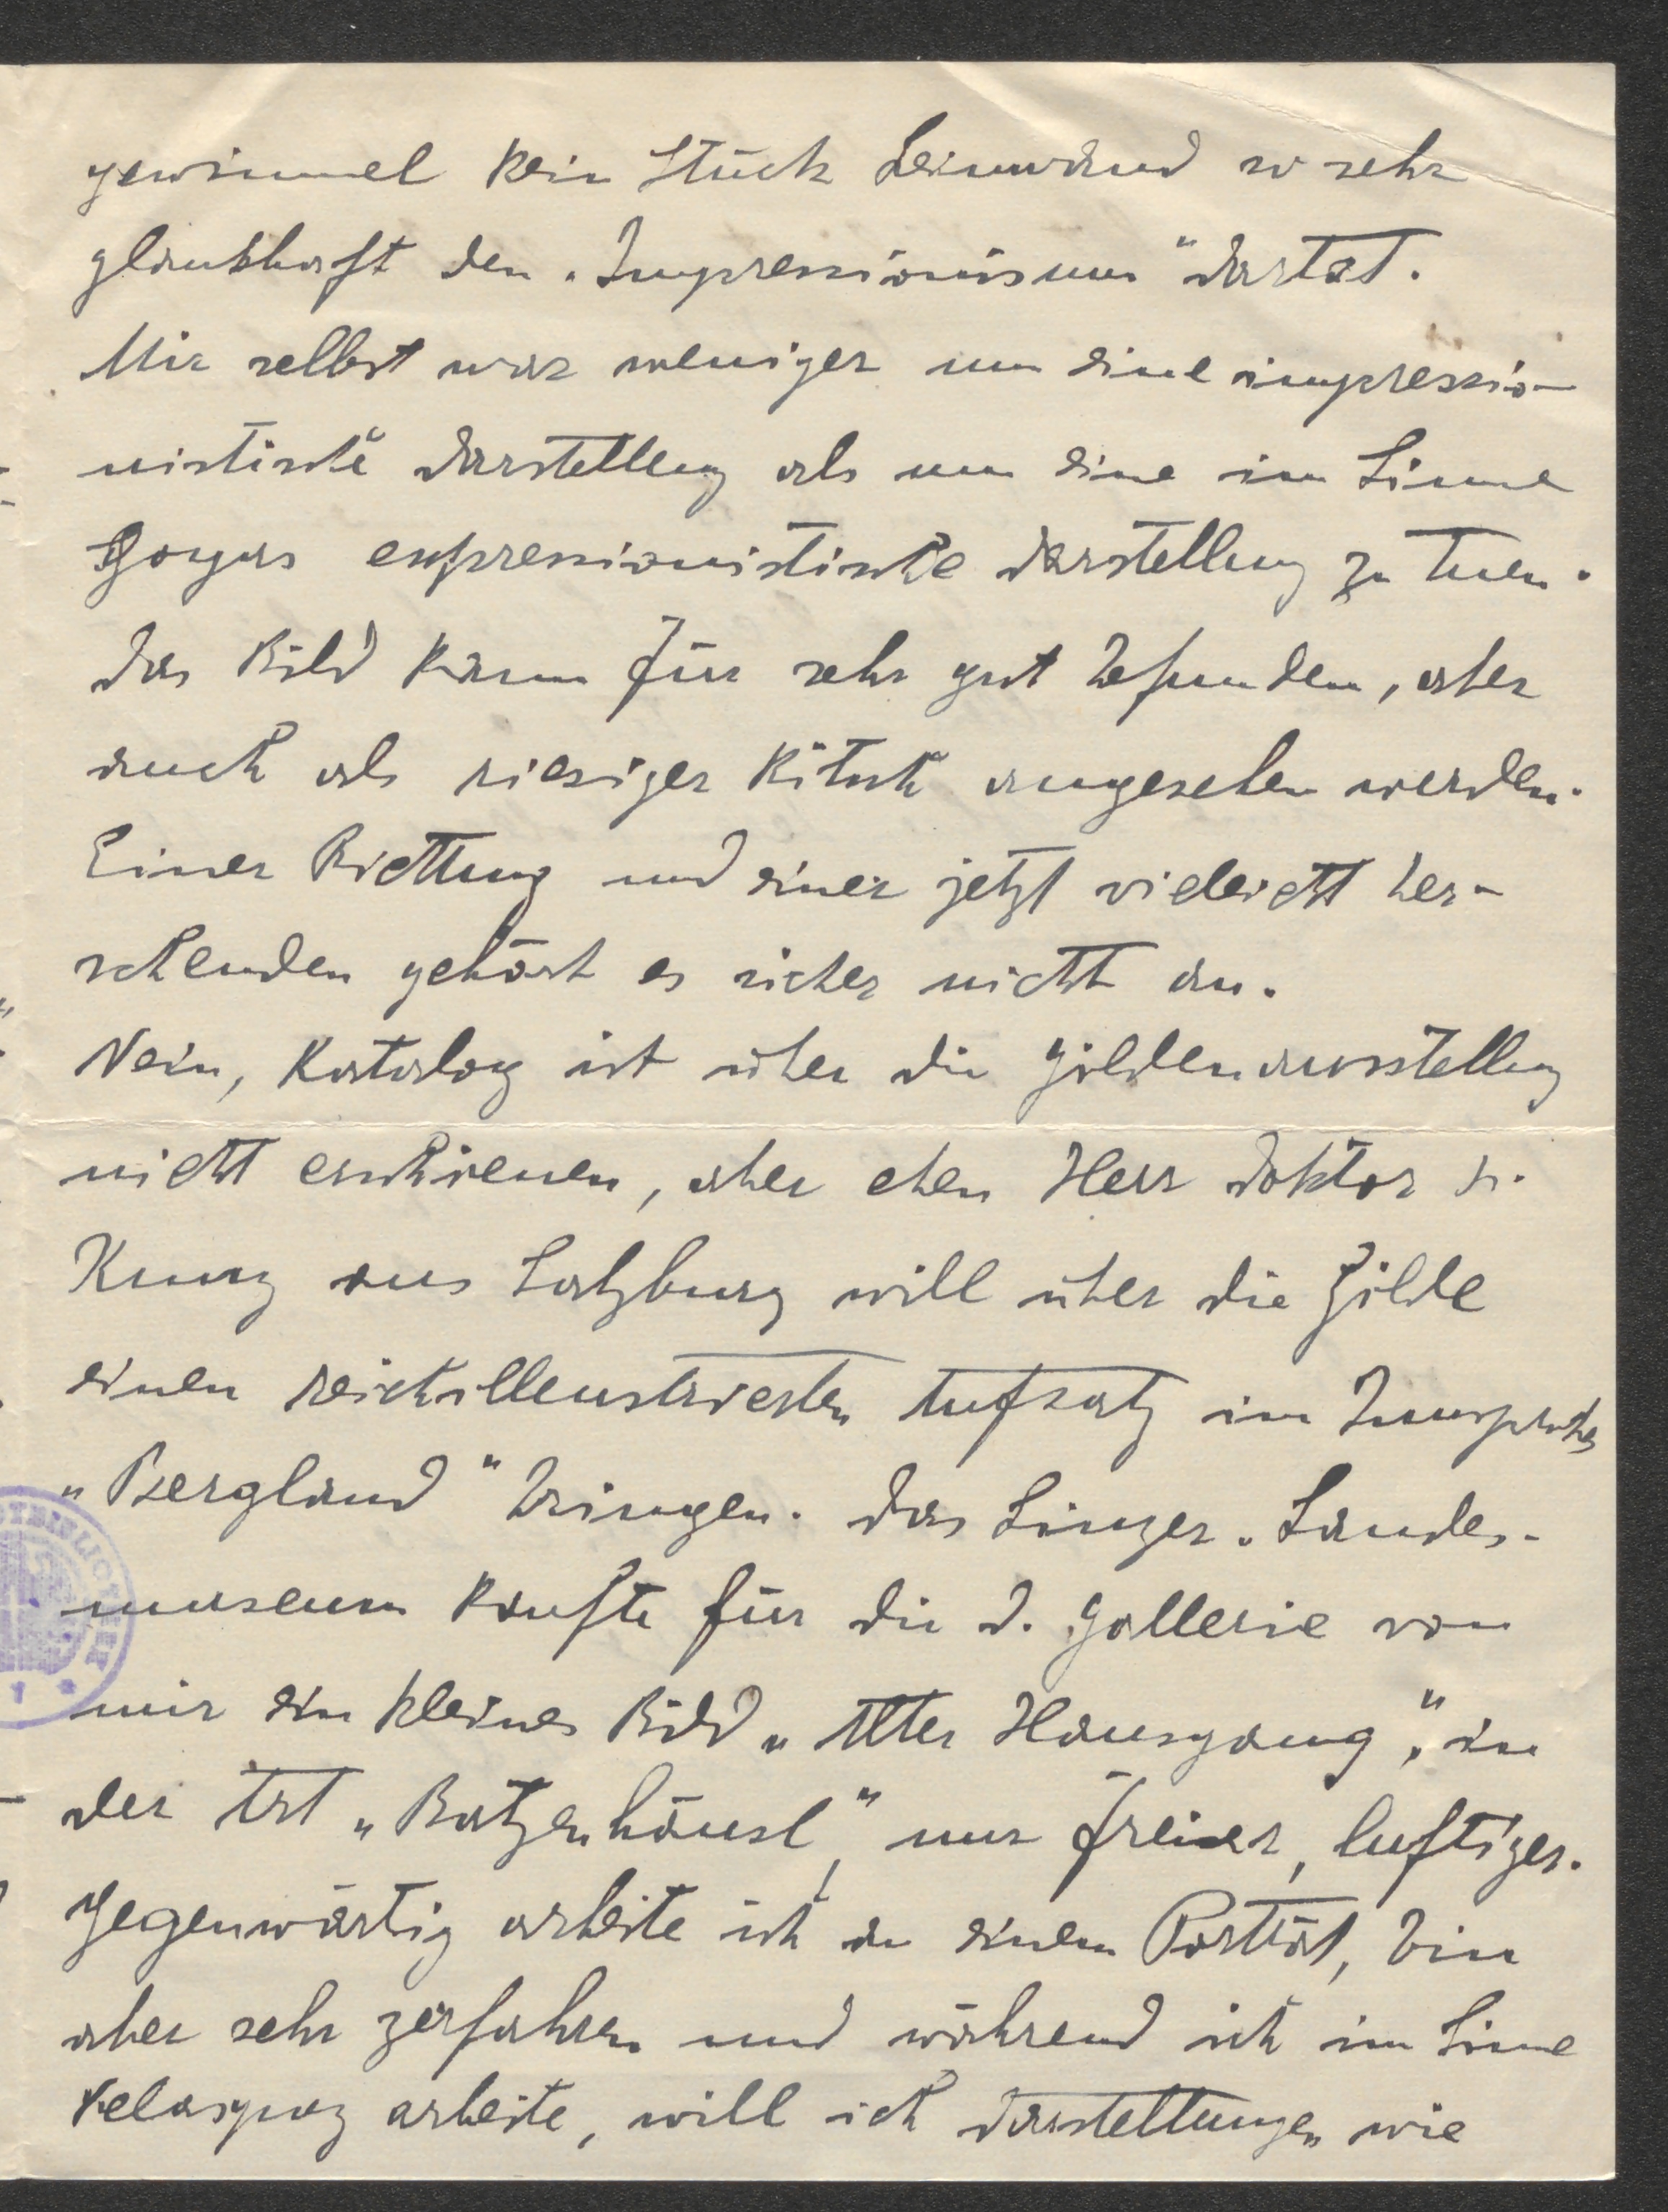 gewimmel kein Stück Leinwand so sehr
glaubhaft den „Impressionismus" dartat.
Mir selbst war weniger um eine impressio-
nistische Darstellung als um eine im Sinne
Goyas expressionistische Darstellung zu tuen.
Das Bild kann für sehr gut befunden, aber
auch als riesiger Kitsch angesehen werden.
Einer Richtung und einer jetzt vieleicht her-
schenden gehört es sicher nicht an.
Nein, Katalog ist über die Gildenausstellung
nicht erschienen, aber eben Herr Doktor
Kunz aus Salzburg will über die Gilde
einen reichillustrierten Aufsatz im Innsprucker
„Bergland" bringen. Das Linzer. Landes-
museum kaufte für die d. Gallerie von
mir ein kleines Bild „Alter Hausgang", in
der Art „Batzenhäusl", nur freier, luftiger.
Gegenwärtig arbeite ich an einem Porträt, bin
aber sehr zerfahren und während ich im Sinne
Velasquez arbeite, will ich Darstellungen wie